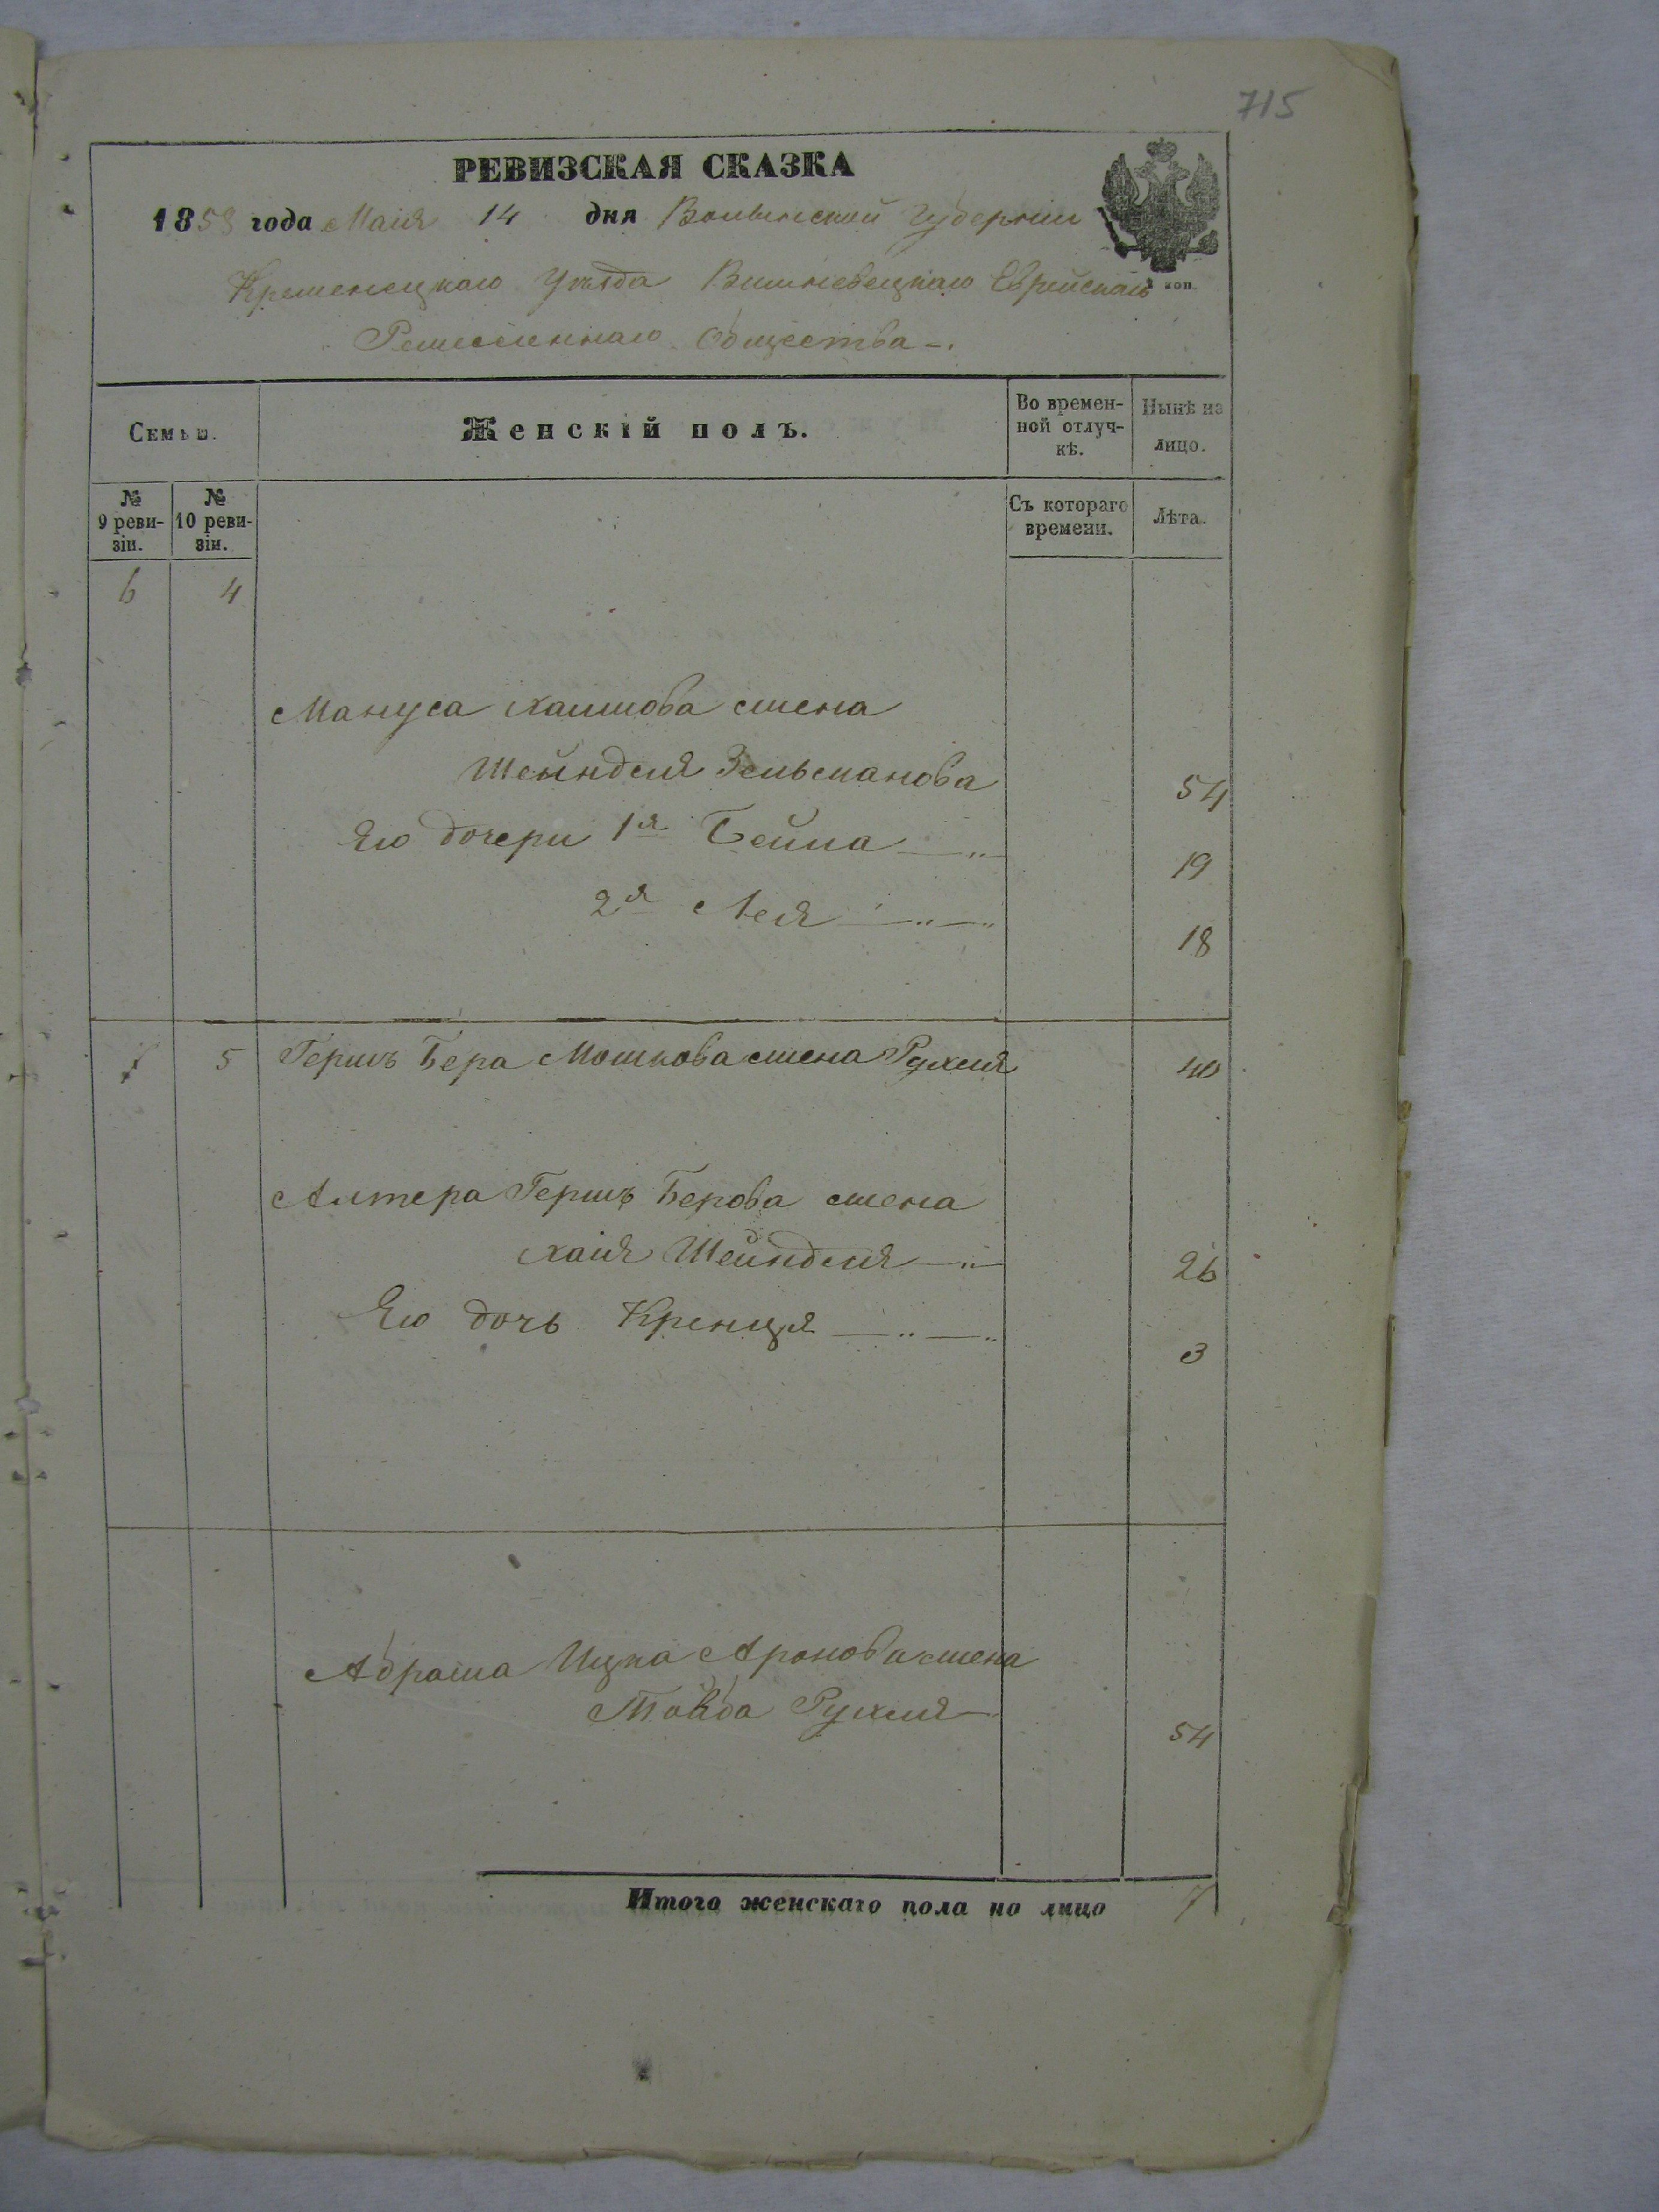 715
РЕВИЗСКАЯ СКАЗКА
1858 года Маія 14 дня Волынской Губерніи
Кременецкаго Уѣзда Вишневецкаго Еврейскаго
коп.
Ремесленнаго Общества
Семьи. Женскій полъ. Во времен-ной отлуч-кѣ. Нынѣ на лицо.
№ 9 реви-зіи. № 10 реви-зіи. Съ котораго времени. Лѣта.
6 4
Мануса Хаимова жена
Шейнделя Зельманова 54
Его дочери 1я Бейла 19
2я Лея 18
5 Гершъ Бера Мошкова жена Рухля 40
Алтера Гершъ Берова жена
Хаія Шейнделя 26
Его дочь Кренця 3
Абрама Ицка Аронова жена
Тойба Рухля 54
Итого женскаго пола на лицо 7